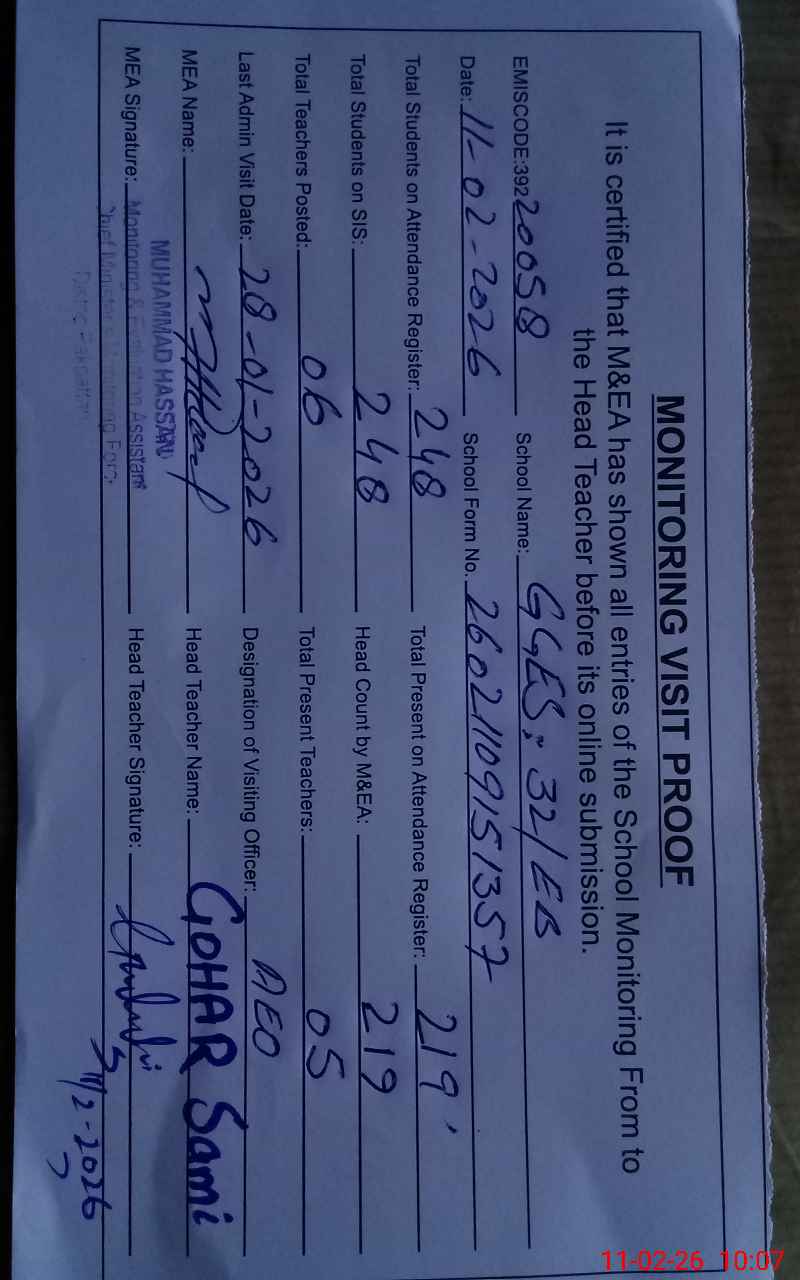 MONITORING VISIT PROOF
It is certified that M&EA has shown all entries of the School Monitoring From to
the Head Teacher before its online submission.
EMISCODE:39220058 School Name: GGES; 32/EB
Date: 11-02-2026 School Form No. 26021109151357
Total Students on Attendance Register: 248 Total Present on Attendance Register: 219
Total Students on SIS: 248 Head Count by M&EA: 219
Total Teachers Posted: 06 Total Present Teachers: 05
Last Admin Visit Date: 28-01-2026 Designation of Visiting Officer: AEO
MEA Name: Head Teacher Name: GOHAR Sami
MEA Signature: Head Teacher Signature:
MUHAMMAD HASSAN
Monitoring & Evaluation Assistant
Chief Minister's Monitoring Force
11/2-2026
11-02-26 10:07